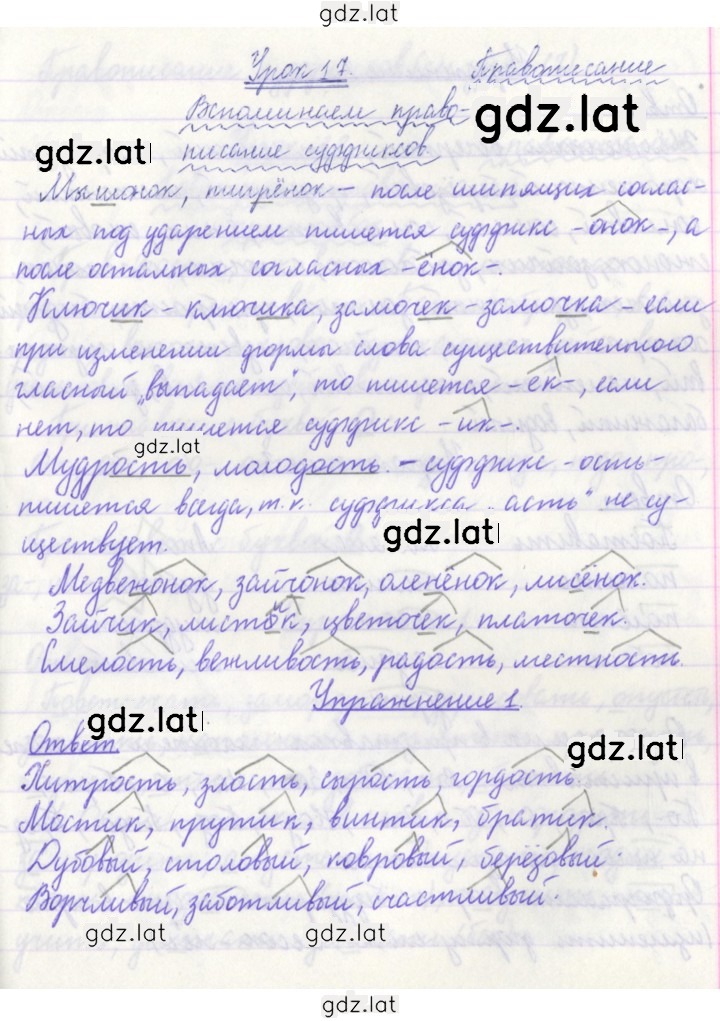 gdz.lat
Урок 17. Правописание
Вспоминаем право-
gdz.lat
gdz.lat
писание суффиксов
Мышонок, тигрёнок – после шипящих соглас-
ных под ударением пишется суффикс -онок-, а
после остальных согласных -ёнок-.
Ключик - ключика, замочек - замочка – если
при изменении формы слова существительного
гласный „выпадает", то пишется -ек-, если
нет, то пишется суффикс -ик-.
gdz.lat
Мудрость, молодость – суффикс -ость-
пишется всегда, т.к. суффикса „асть" не су-
gdz.lat
ществует.
Медвежонок, зайчонок, оленёнок, лисёнок.
Зайчик, листик, цветочек, платочек.
Смелость, вежливость, радость, местность.
Упражнение 1
gdz.lat
Ответ.
gdz.lat
Хитрость, злость, сырость, гордость.
Мостик, прутик, винтик, братик.
Дубовый, столовый, ковровый, берёзовый.
Ворчливый, заботливый, счастливый.
gdz.lat gdz.lat
gdz.lat